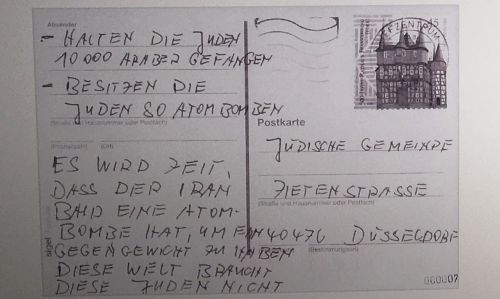 Absender
- HALTEN DIE JUDEN
10 000 ARABER GEFANGEN
- BESITZEN DIE
JUDEN 80 ATOMBOMBEN
(Straße und Hausnummer oder Postfach)
(Postleitzahl) (Ort)
ES WIRD ZEIT,
DASS DER IRAN
BALD EINE ATOM-
BOMBE HAT, UM EIN
GEGENGEWICHT ZU HABEN
DIESE WELT BRAUCHT
DIESE JUDEN NICHT
sigel
45
BRIEFZENTRUM
Postkarte
JÜDISCHE GEMEINDE
ZIETENSTRASSE
(Straße und Hausnummer oder Postfach)
40476 DÜSSELDORF
(Bestimmungsort)
000007